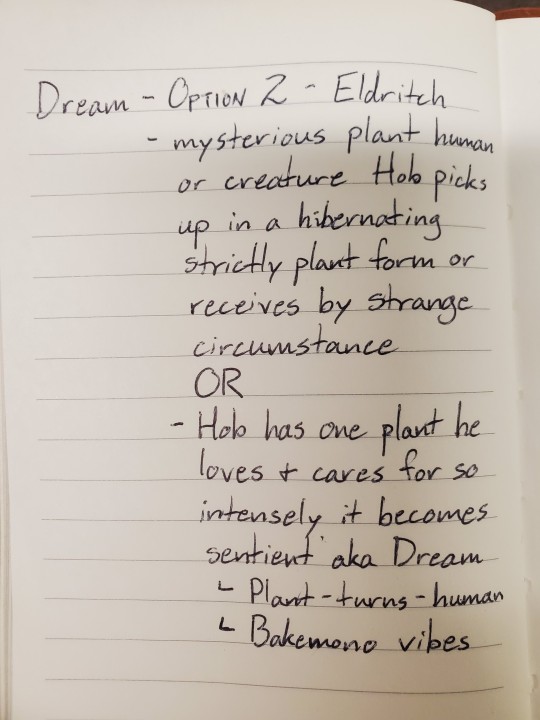 Dream - OPTION 2 - Eldritch
- mysterious plant human
or creature Hob picks
up in a hibernating
strictly plant form or
receives by strange
circumstance
OR
- Hob has one plant he
loves + cares for so
intensely it becomes
sentient aka Dream
└ Plant-turns-human
└ Bakemono vibes